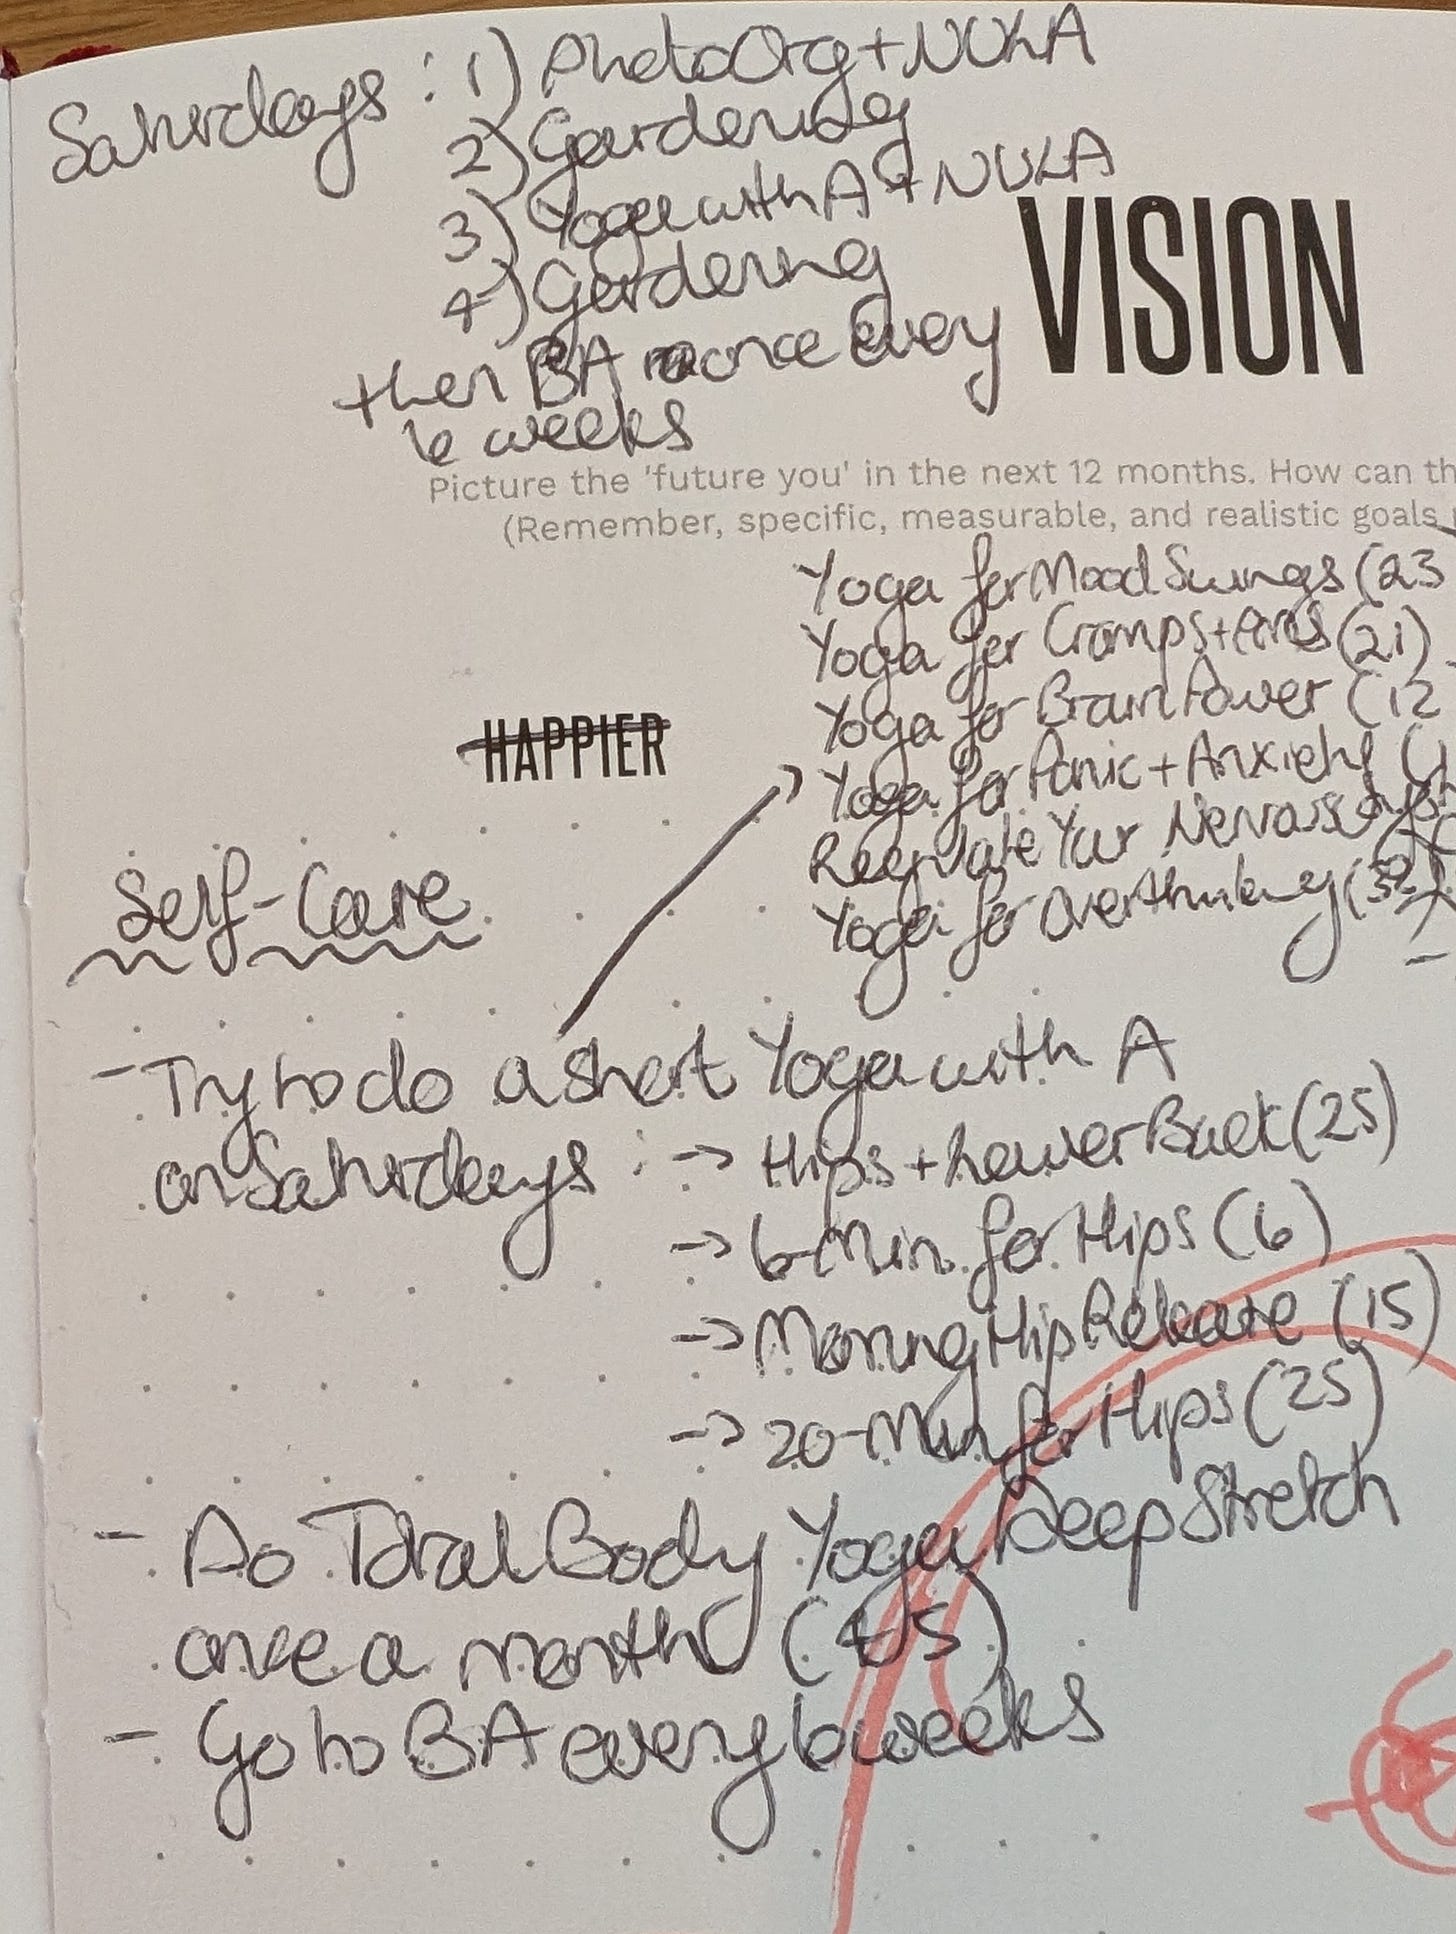 Saturdays : 1) PhotoOrg + NULA
2) Gardening
3) Yoga with A + NULA
4) Gardening
then BA once every
6 weeks
VISION
Picture the 'future you' in the next 12 months. How can th
(Remember, specific, measurable, and realistic goals
Yoga for Mood Swings (23
Yoga for Cramps + (21)
Yoga for Brain Power (12
Yoga for Panic + Anxiety (
Regulate Your Nervous
Yoga for Overthinking
HAPPIER
Self-Care
- Try to do a short Yoga with A
on Saturdays : -> Hips + Lower Back (25)
-> 6-Min. for Hips (6)
-> Morning Hip Release (15)
-> 20-Min for Hips (25)
- Do Total Body Yoga Deep Stretch
once a month (45)
- Go to BA every 6 weeks